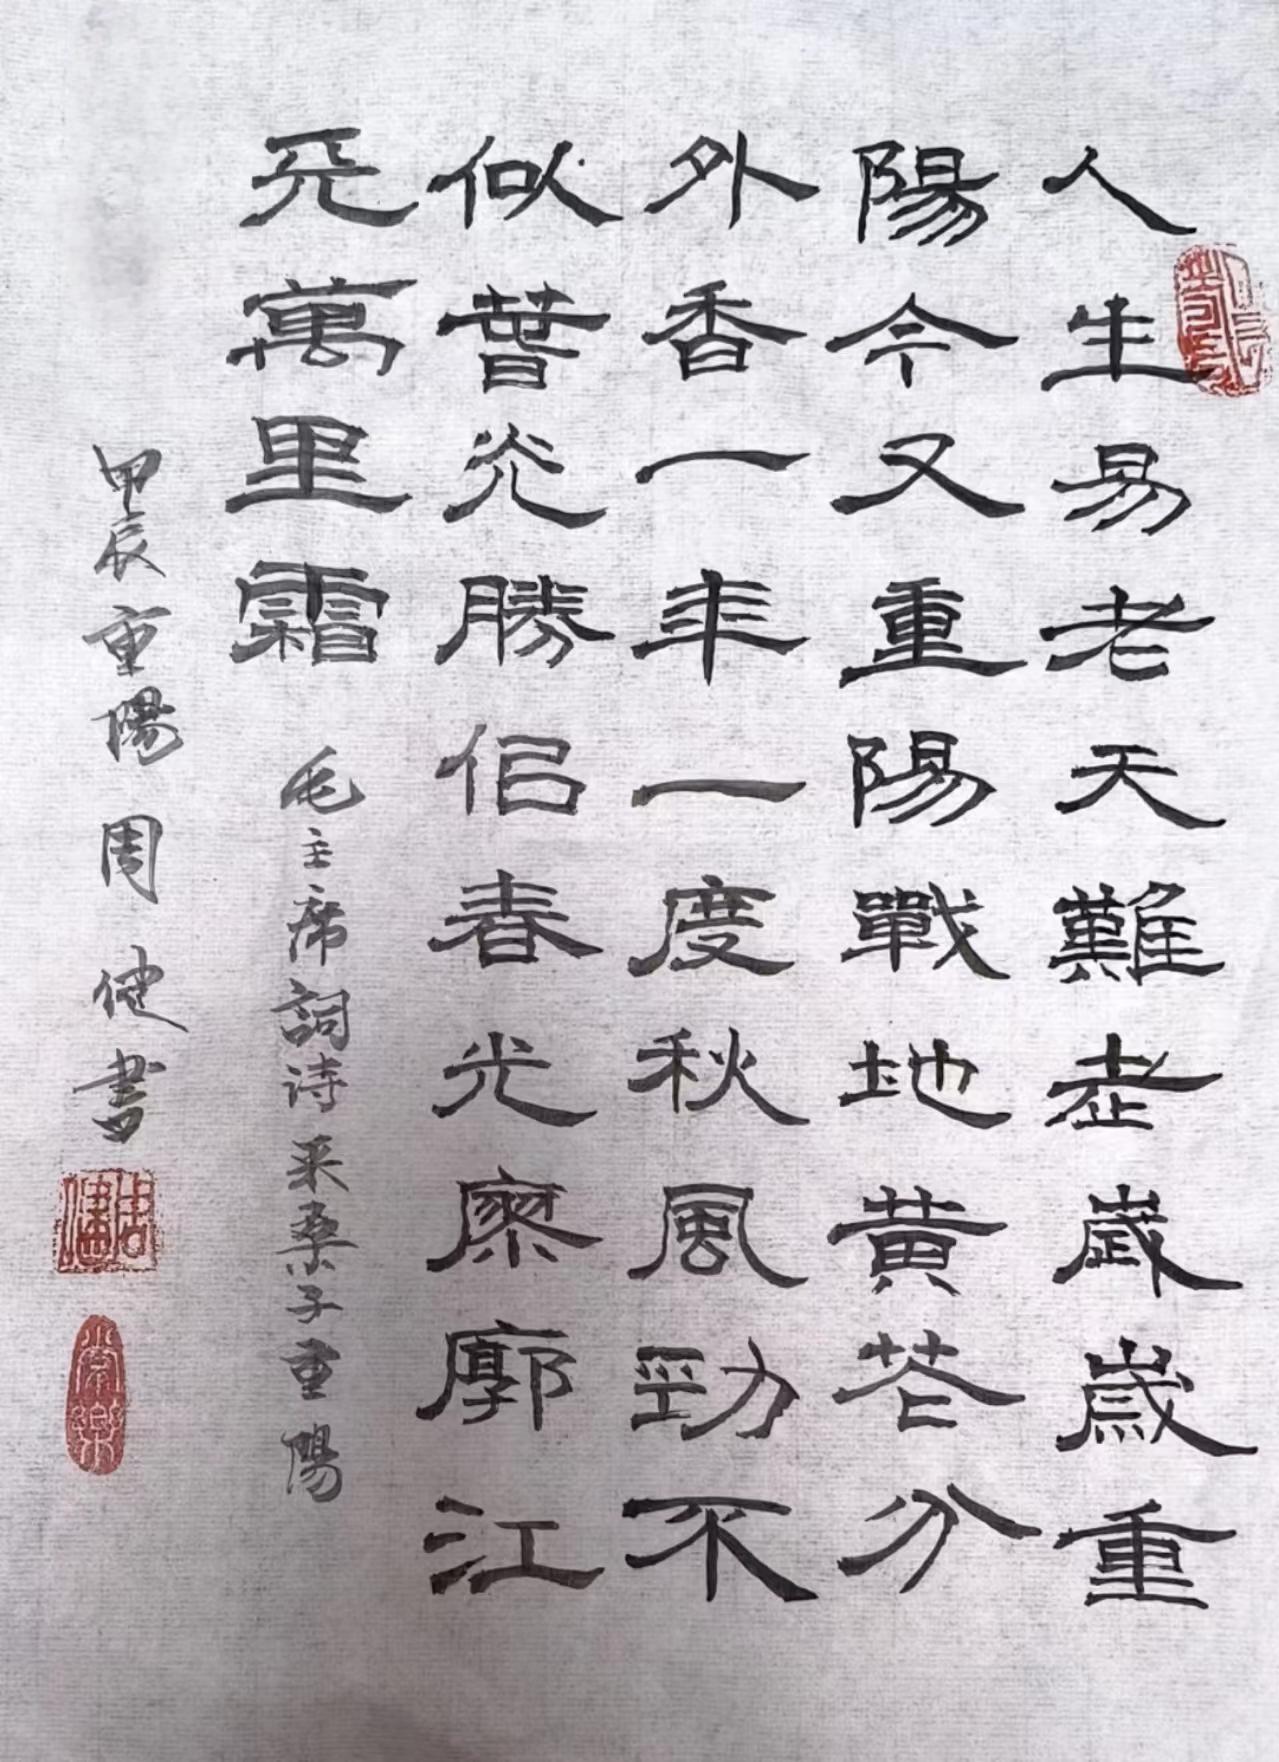 人生易老天難老歲歲重
陽今又重陽戰地黄花分
外香一年一度秋風勁不
似萅灮勝佀春光寥廓江
天萬里霜
毛主席詞诗采桑子重陽
甲辰重陽周健書
周健
常樂